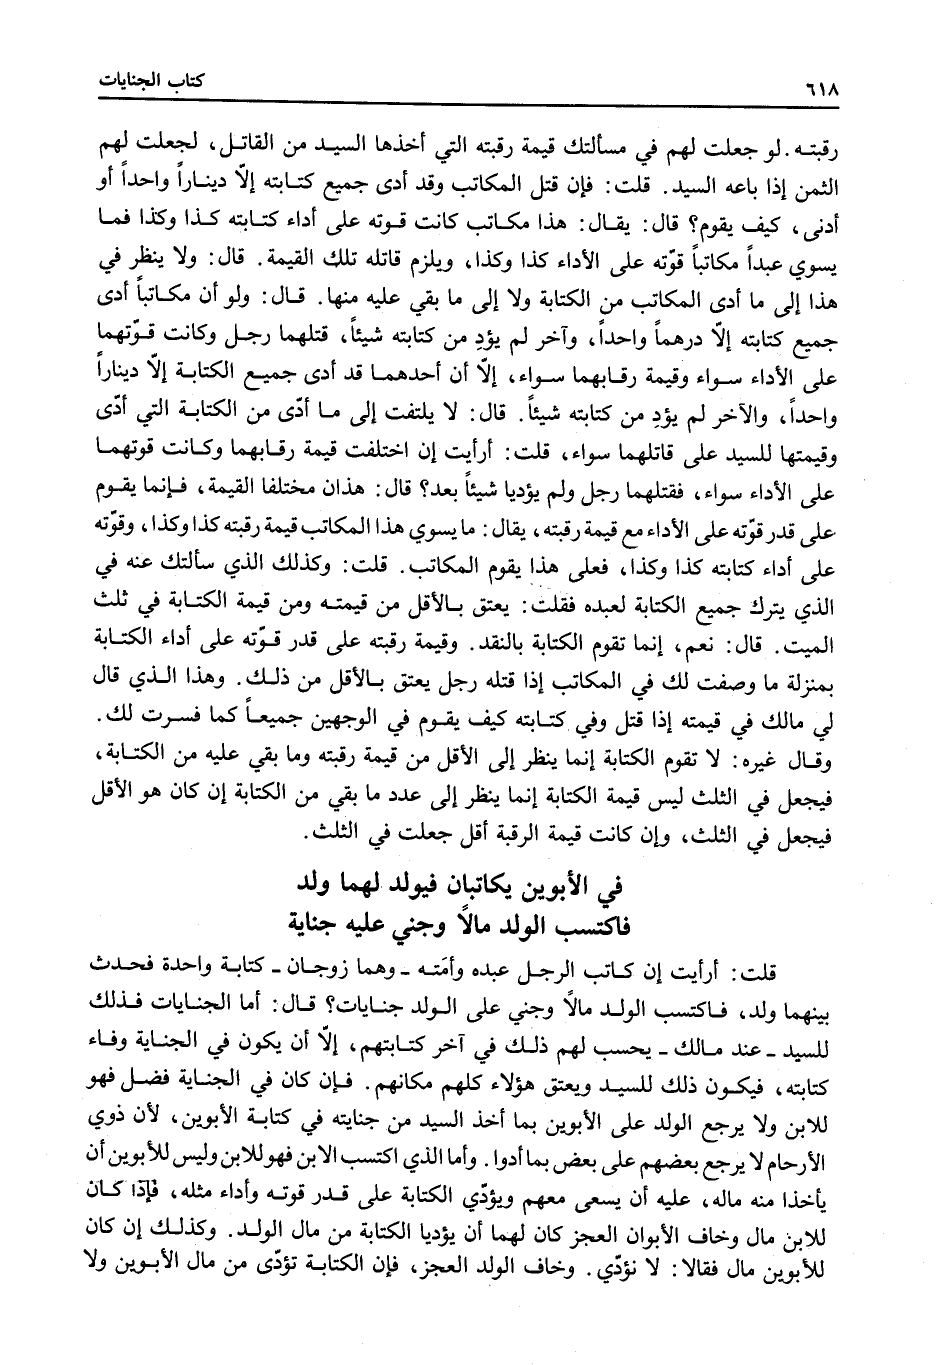 ٦١٨
كتاب الجنايات
رقبته. لو جعلت لهم في مسألتك قيمة رقبته التي أخذها السيد من القاتل، لجعلت لهم
الثمن إذا باعه السيد. قلت: فإن قتل المكاتب وقد أدى جميع كتابته إلاّ ديناراً واحداً أو
أدنى، كيف يقوم؟ قال: يقال: هذا مكاتب كانت قوته على أداء كتابته كذا وكذا فما
يسوي عبداً مكاتباً قوّته على الأداء كذا وكذا، ويلزم قاتله تلك القيمة. قال: ولا ينظر في
هذا إلى ما أدى المكاتب من الكتابة ولا إلى ما بقي عليه منها. قال: ولو أن مكاتباً أدى
جميع كتابته إلاّ درهماً واحداً، وآخر لم يؤدِ من كتابته شيئاً، قتلهما رجل وكانت قوّتهما
على الأداء سواء وقيمة رقابهما سواء، إلاّ أن أحدهما قد أدى جميع الكتابة إلاّ ديناراً
واحداً، والآخر لم يؤدِ من كتابته شيئاً. قال: لا يلتفت إلى ما أدّى من الكتابة التي أدّى
وقيمتها للسيد على قاتلهما سواء، قلت: أرأيت إن اختلفت قيمة رقابهما وكانت قوتهما
على الأداء سواء، فقتلهما رجل ولم يؤديا شيئاً بعد؟ قال: هذان مختلفا القيمة، فإنما يقوم
على قدر قوّته على الأداء مع قيمة رقبته، يقال: ما يسوي هذا المكاتب قيمة رقبته كذا وكذا، وقوّته
على أداء كتابته كذا وكذا، فعلى هذا يقوم المكاتب. قلت: وكذلك الذي سألتك عنه في
الذي يترك جميع الكتابة لعبده فقلت: يعتق بالأقل من قيمته ومن قيمة الكتابة في ثلث
الميت. قال: نعم، إنما تقوم الكتابة بالنقد. وقيمة رقبته على قدر قوّته على أداء الكتابة
بمنزلة ما وصفت لك في المكاتب إذا قتله رجل يعتق بالأقل من ذلك. وهذا الذي قال
لي مالك في قيمته إذا قتل وفي كتابته كيف يقوم في الوجهين جميعاً كما فسرت لك.
وقال غيره: لا تقوم الكتابة إنما ينظر إلى الأقل من قيمة رقبته وما بقي عليه من الكتابة،
فيجعل في الثلث ليس قيمة الكتابة إنما ينظر إلى عدد ما بقي من الكتابة إن كان هو الأقل
فيجعل في الثلث، وإن كانت قيمة الرقبة أقل جعلت في الثلث.
في الأبوين يكاتبان فيولد لهما ولد
فاكتسب الولد مالاً وجني عليه جناية
قلت: أرأيت إن كاتب الرجل عبده وأمَته ـ وهما زوجان ـ كتابة واحدة فحدث
بينهما ولد، فاكتسب الولد مالاً وجني على الولد جنايات؟ قال: أما الجنايات فذلك
للسيد ـ عند مالك ـ يحسب لهم ذلك في آخر كتابتهم، إلاّ أن يكون في الجناية وفاء
كتابته، فيكون ذلك للسيد ويعتق هؤلاء كلهم مكانهم. فإن كان في الجناية فضل فهو
للابن ولا يرجع الولد على الأبوين بما أخذ السيد من جنايته في كتابة الأبوين، لأن ذوي
الأرحام لا يرجع بعضهم على بعض بما أدوا. وأما الذي اكتسب الابن فهو للابن وليس للأبوين أن
يأخذا منه ماله، عليه أن يسعى معهم ويؤدّي الكتابة على قدر قوته وأداء مثله، فإذا كان
للابن مال وخاف الأبوان العجز كان لهما أن يؤديا الكتابة من مال الولد. وكذلك إن كان
للأبوين مال فقالا: لا نؤدّي. وخاف الولد العجز، فإن الكتابة تؤدّى من مال الأبوين ولا